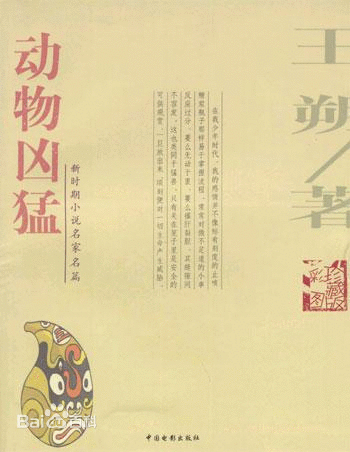 动物凶猛
新时期小说名家名篇
王朔/著
在我少年时代,我的感情并不像标有刻度的止咳
糖浆瓶子那样易于掌握流程,常常对微不足道的小事
反应过分,要么无动于衷,要么摧肝裂胆,其缝隙间
不容发。这也类同于猛兽,只有关在笼子里是安全的
可供观赏,一旦放出来,顷刻便对一切生命产生威胁。
珍藏版
彩图
中国电影出版社
Bai百科